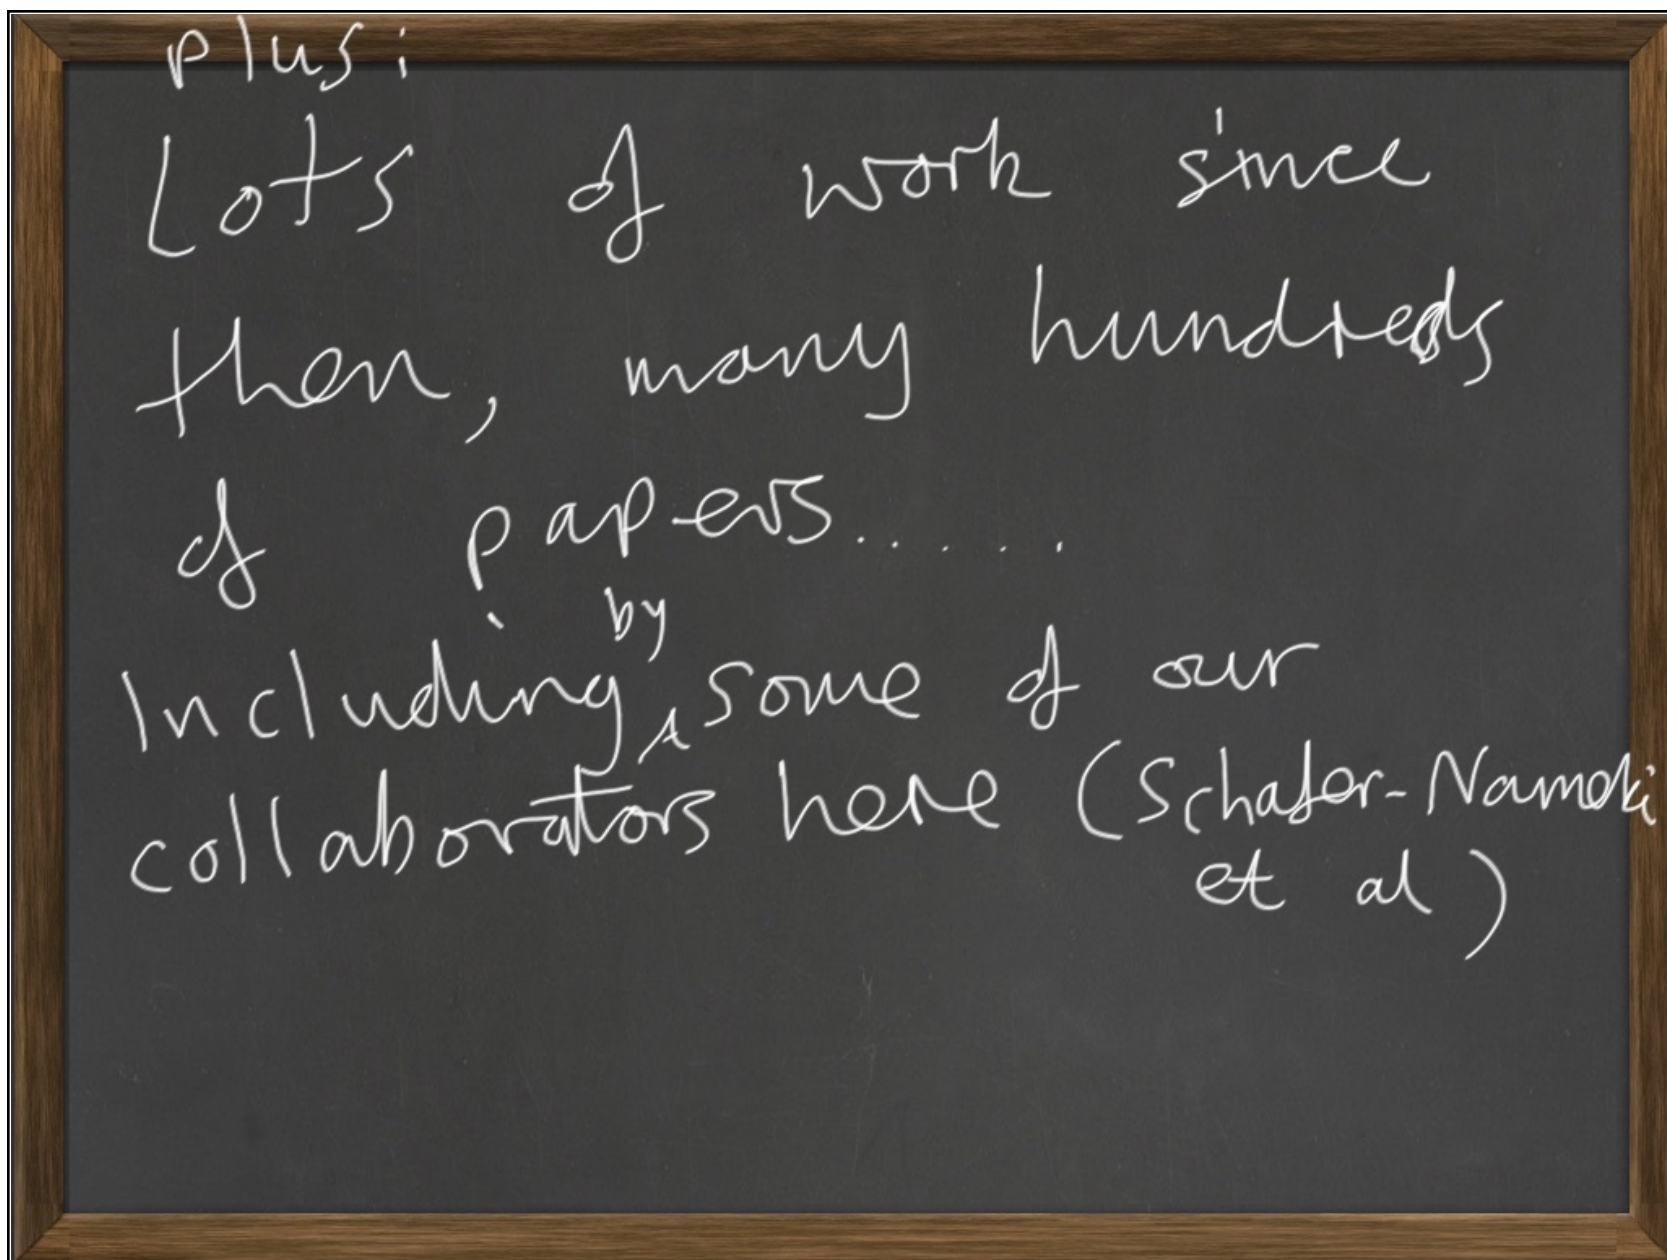 plus:
Lots of work since
then, many hundreds
of papers.....
Including by some of our
collaborators here (Schafer-Nameki
et al)